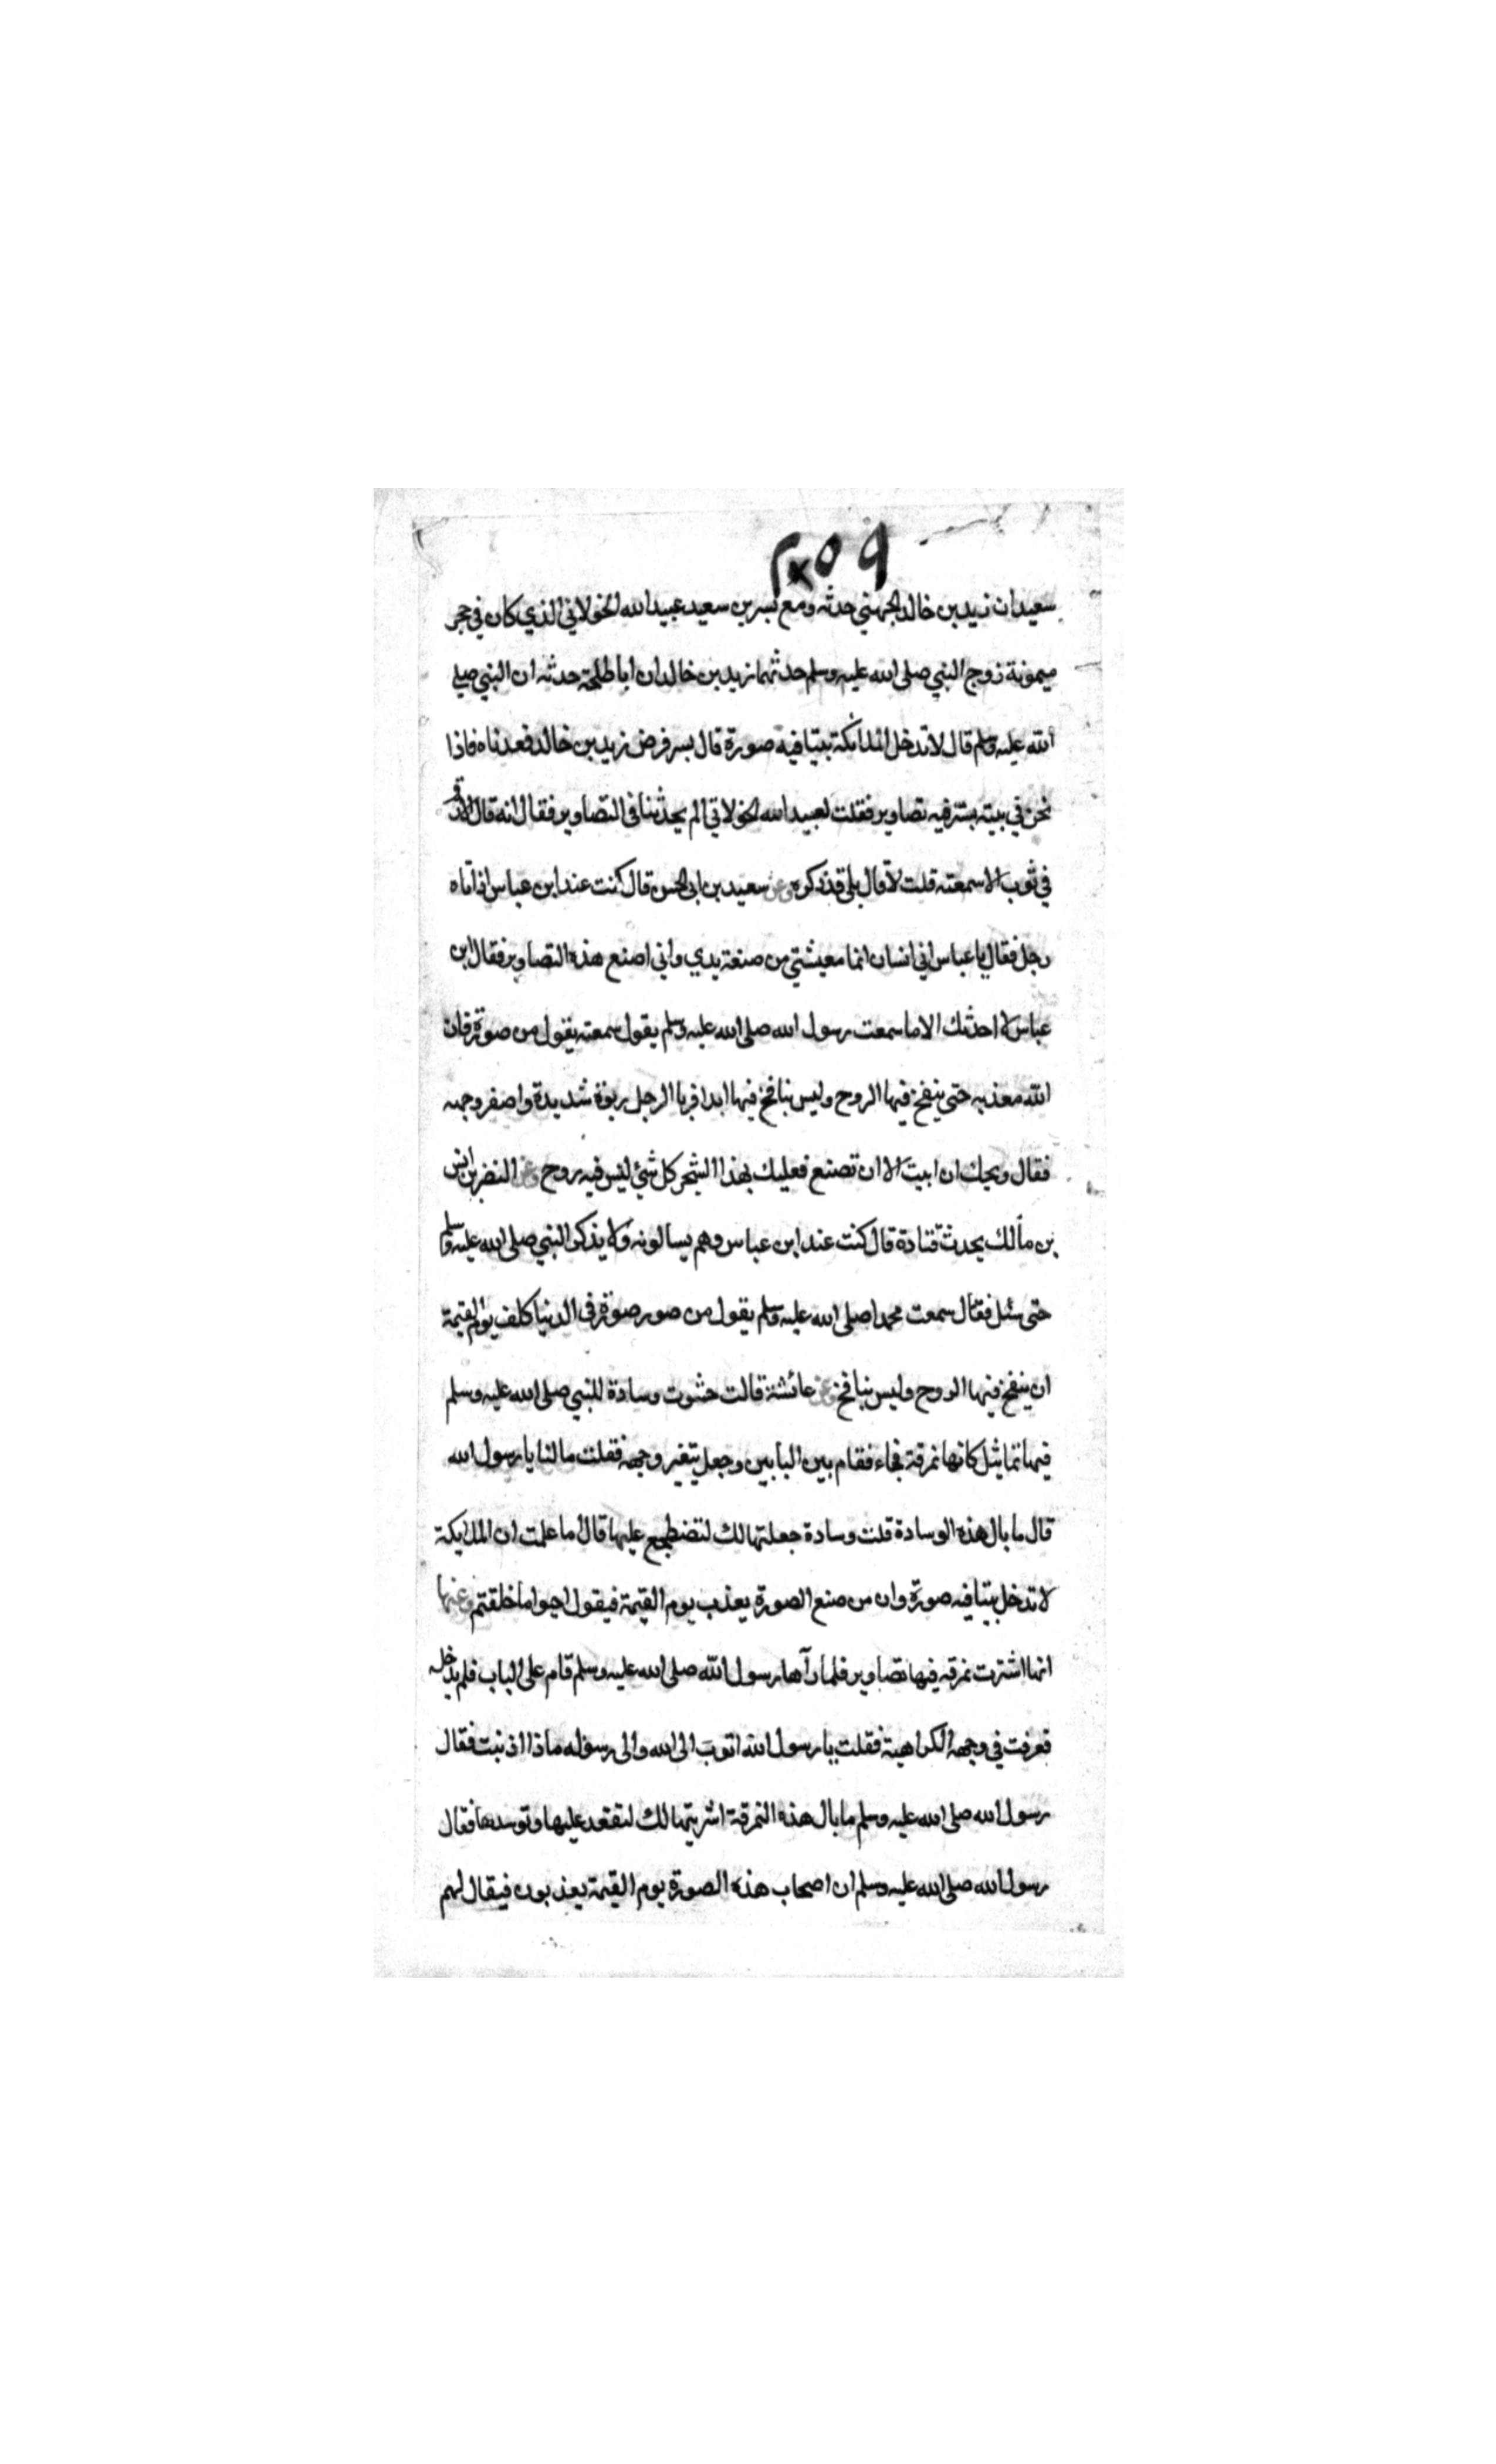 ٢٥٩
سعيد ان زيد بن خالد الجهني حدثه ومع بسر بن سعيد عبيد الله الخولاني الذي كان في حجر
ميمونة زوج النبي صلى الله عليه وسلم حدثهما زيد بن خالد ان ابا طلحة حدثه ان النبي صلى
الله عليه وسلم قال لا تدخل الملائكة بيتا فيه صورة قال بسر فمرض زيد بن خالد فعدناه فاذا
نحن في بيته بستر فيه تصاوير فقلت لعبيد الله الخولاني الم يحدثنا في التصاوير فقال انه قال الا رقم
في ثوب الا سمعته قلت لا قال بلى قد ذكره وعن سعيد بن ابى الحسن قال كنت عند ابن عباس اذ اتاه
رجل فقال يا عباس اني انسان انما معيشتي من صنعة يدي واني اصنع هذه التصاوير فقال ابن
عباس لا احدثك الا ما سمعت رسول الله صلى الله عليه وسلم يقول سمعته يقول من صورة فان
الله معذبه حتى ينفخ فيها الروح وليس بنافخ فيها ابدا فربا الرجل ربوة شديدة واصفر وجهه
فقال ويحك ان ابيت الا ان تصنع فعليك بهذا الشجر كل شئ ليس فيه روح وعن النضر بن انس
بن مالك يحدث قتادة قال كنت عند ابن عباس وهم يسالونه ولا يذكر النبي صلى الله عليه وسلم
حتى سئل فقال سمعت محمدا صلى الله عليه وسلم يقول من صور صورة في الدنيا كلف يوم القيمة
ان ينفخ فيها الروح وليس بنافخ وعن عائشة قالت حشوت وسادة للنبي صلى الله عليه وسلم
فيها تماثيل كانها نمرقة فجاء فقام بين البابين وجعل يتغير وجهه فقلت مالنا يا رسول الله
قال ما بال هذه الوسادة قلت وسادة جعلتها لك لتضطجع عليها قال ما علمت ان الملايكة
لا تدخل بيتا فيه صورة وان من صنع الصورة يعذب يوم القيمة فيقول احيوا ما خلقتم وعنها
انها اشترت نمرقه فيها تصاوير فلما رآها رسول الله صلى الله عليه وسلم قام على الباب فلم يدخله
فعرفت في وجهه الكراهية فقلت يا رسول الله اتوب الى الله والى رسوله ماذا اذنبت فقال
رسول الله صلى الله عليه وسلم ما بال هذه النمرقة اشريتها لك لتقعد عليها وتوسدها فقال
رسول الله صلى الله عليه وسلم ان اصحاب هذه الصورة يوم القيمة يعذبون فيقال لهم